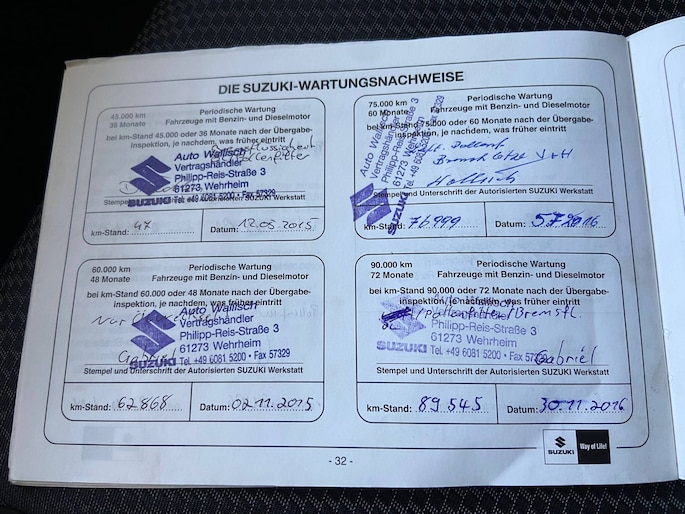 DIE SUZUKI-WARTUNGSNACHWEISE
45.000 km
36 Monate
Periodische Wartung
Fahrzeuge mit Benzin- und Dieselmotor
bei km-Stand 45.000 oder 36 Monate nach der Übergabe-
inspektion, je nachdem, was früher eintritt
Auto Wallisch
Vertragshändler
Philipp-Reis-Straße 3
61273 Wehrheim
SUZUKI Tel. +49 6081 5200 • Fax 57329
Stempel und Unterschrift der Autorisierten SUZUKI Werkstatt
km-Stand: 47
Datum: 12.03.2015
60.000 km
48 Monate
Periodische Wartung
Fahrzeuge mit Benzin- und Dieselmotor
bei km-Stand 60.000 oder 48 Monate nach der Übergabe-
inspektion, je nachdem, was früher eintritt
Nur
Auto Wallisch
Vertragshändler
Philipp-Reis-Straße 3
61273 Wehrheim
SUZUKI Tel. +49 6081 5200 • Fax 57329
Gabriel
Stempel und Unterschrift der Autorisierten SUZUKI Werkstatt
km-Stand: 62868
Datum: 02.11.2015
75.000 km
60 Monate
Periodische Wartung
Fahrzeuge mit Benzin- und Dieselmotor
bei km-Stand 75.000 oder 60 Monate nach der Übergabe-
inspektion, je nachdem, was früher eintritt
Auto Wallisch
Vertragshändler
Philipp-Reis-Straße 3
61273 Wehrheim
SUZUKI Tel. +49 6081 5200 • Fax 57329
V+H
Stempel und Unterschrift der Autorisierten SUZUKI Werkstatt
km-Stand: 76999
Datum: 5.7.2016
90.000 km
72 Monate
Periodische Wartung
Fahrzeuge mit Benzin- und Dieselmotor
bei km-Stand 90.000 oder 72 Monate nach der Übergabe-
inspektion, je nachdem, was früher eintritt
Auto Wallisch
/Pollenfilter/Bremsfl.
Vertragshändler
Philipp-Reis-Straße 3
61273 Wehrheim
SUZUKI Tel. +49 6081 5200 • Fax 57329
Gabriel
Stempel und Unterschrift der Autorisierten SUZUKI Werkstatt
km-Stand: 89545
Datum: 30.11.2016
- 32 -
SUZUKI
Way of Life!